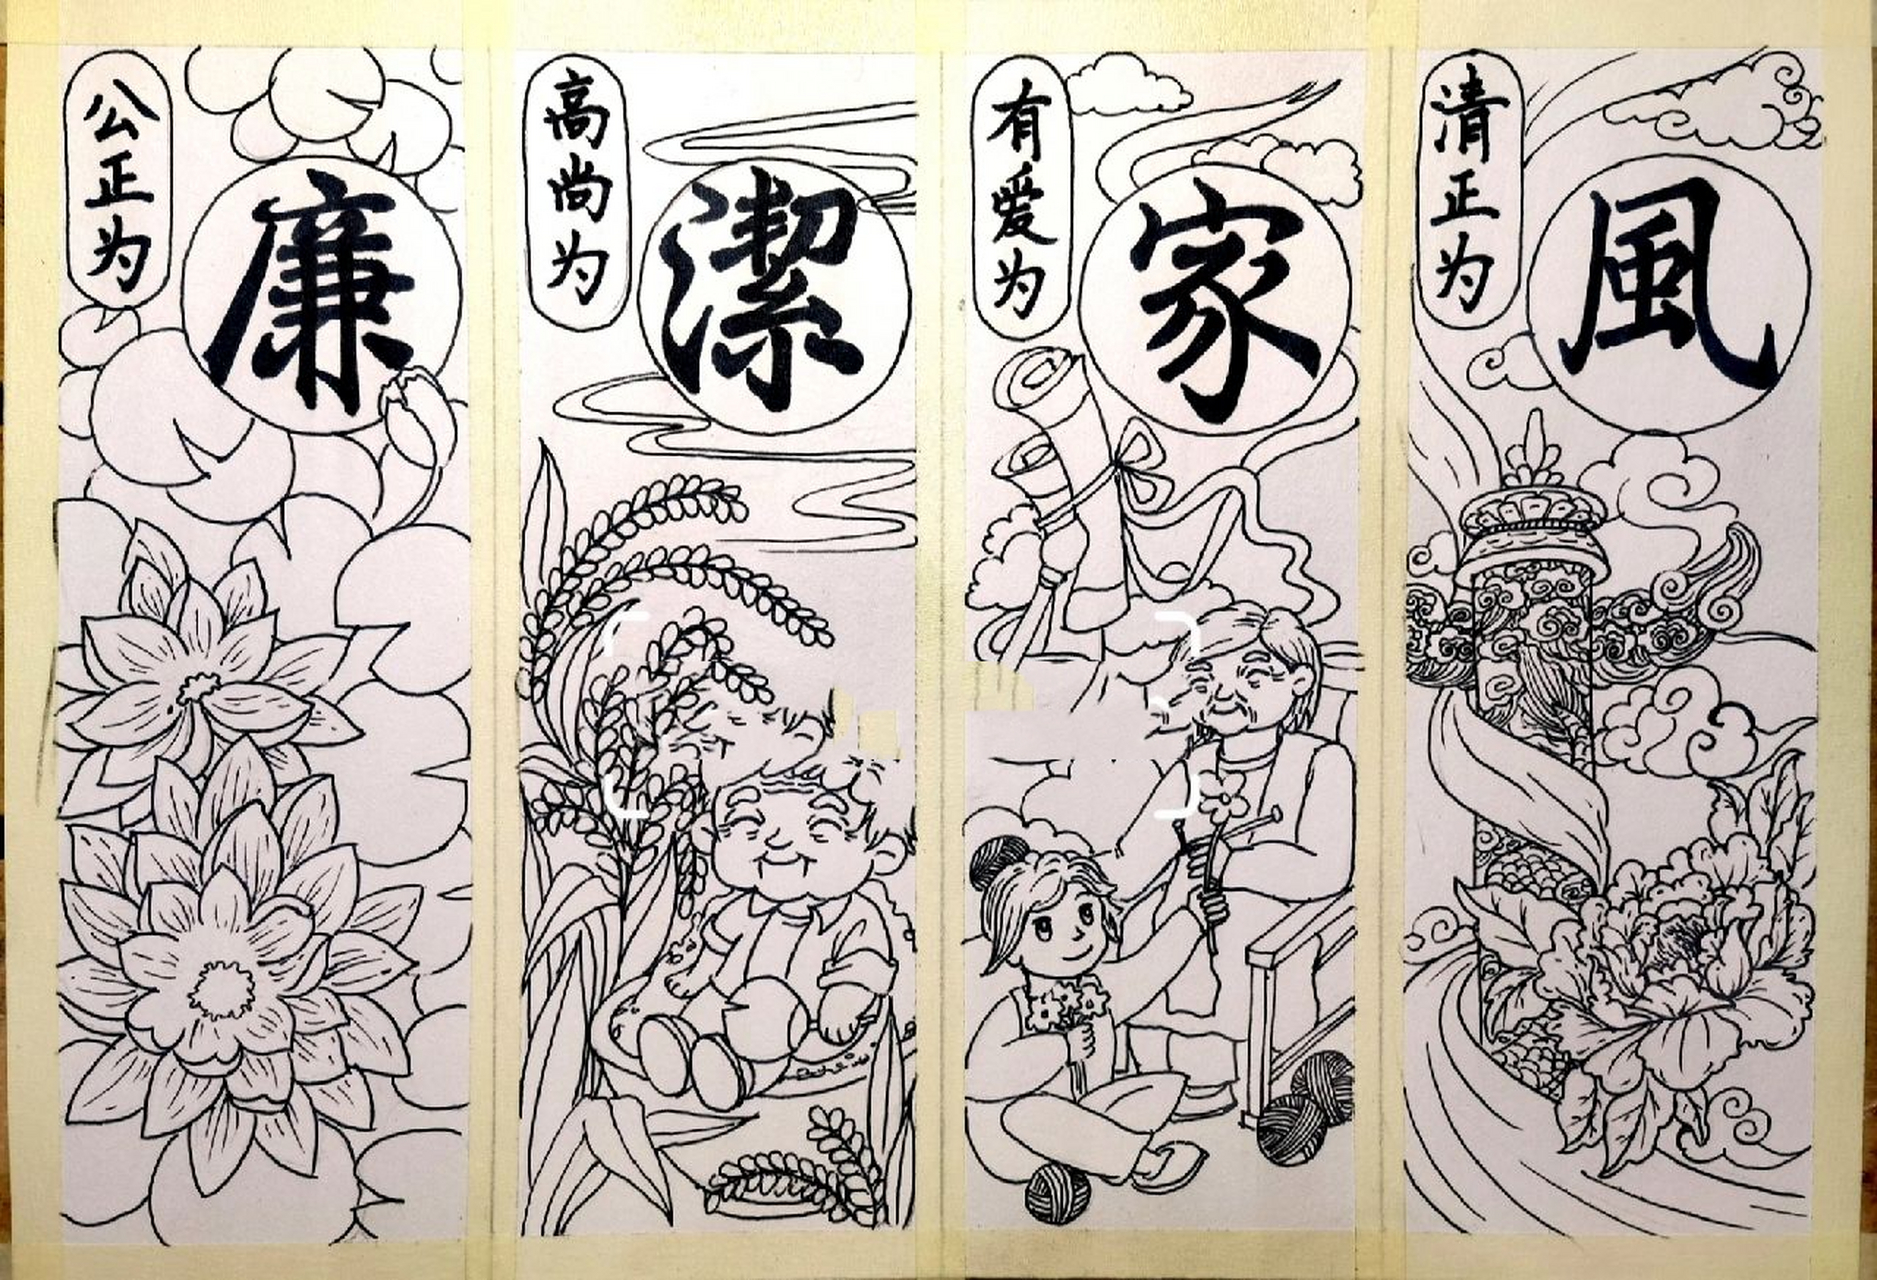 公正为
廉
高尚为
潔
有爱为
家
清正为
風